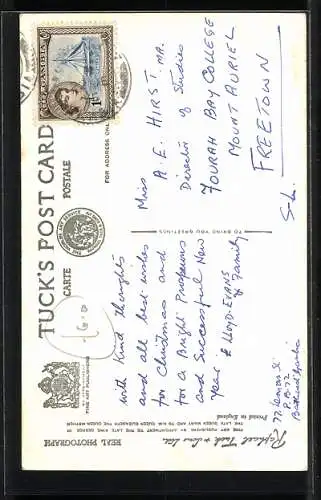 TUCK'S POST CARD
CARTE POSTALE
FOR ADDRESS ONLY
GAMBIA
1s
with Kind thoughts
and all best wishes
for Christmas and
for a Bright Prosperous
and Successful New
Year E Lloyd-Evans
& Family
P.B. 72
TO BRING YOU GREETINGS
Miss A. E. HIRST. MA.
Director of Studies
FOURAH BAY COLLEGE
MOUNT AURIOL
FREETOWN
S-L.
REAL PHOTOGRAPH
FINE ART PUBLISHERS
FINE ART PUBLISHERS BY APPOINTMENT TO THE LATE KING GEORGE VI
THE LATE QUEEN MARY AND TO H.M. QUEEN ELIZABETH THE QUEEN MOTHER
Raphael Tuck & Sons Ltd.
Printed in England